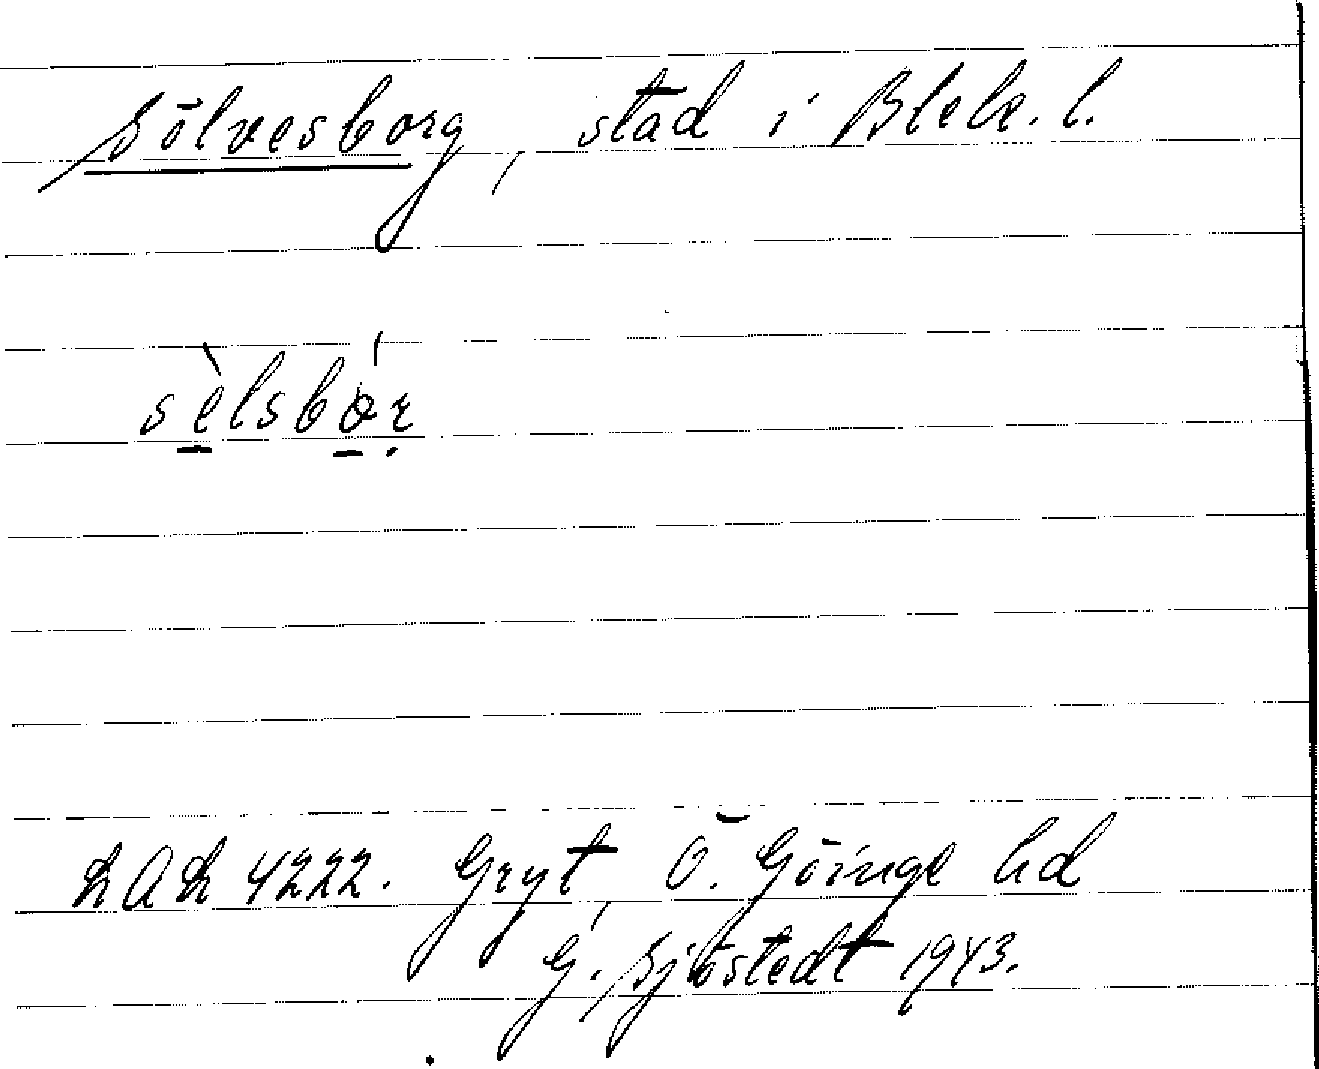 Sölvesborg, stad i Blek. l.
sèlsbór
LAL 4222. Gryt, Ö. Göinge hd
G. Sjöstedt 1943.